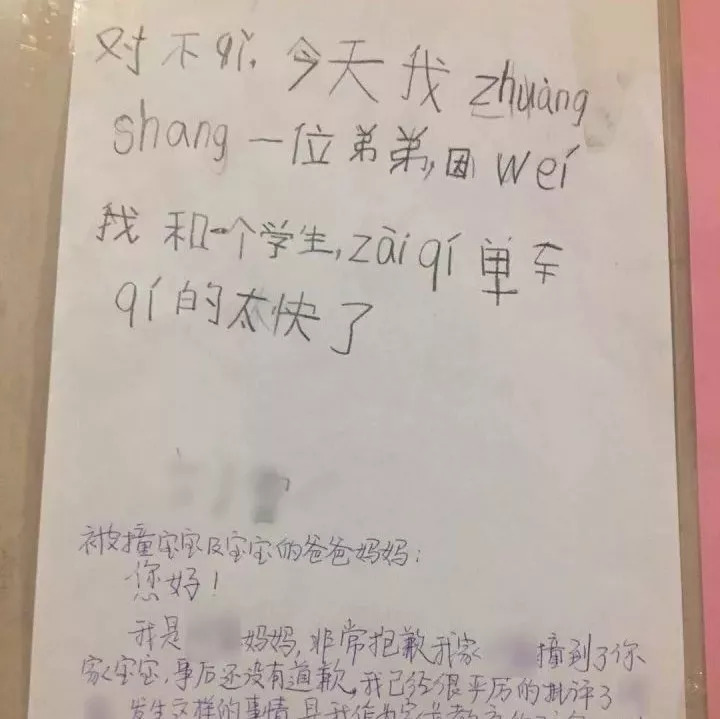 对不qǐ,今天我zhuàng
shang一位弟弟,因wéi
我和一个学生,zài qí单车
qí的太快了
被撞宝宝及宝宝的爸爸妈妈:
您好!
我是 妈妈,非常抱歉我家 撞到了你
家宝宝,事后还没有道歉,我已经很严厉的批评了
发生这样的事情是我作为家长教育